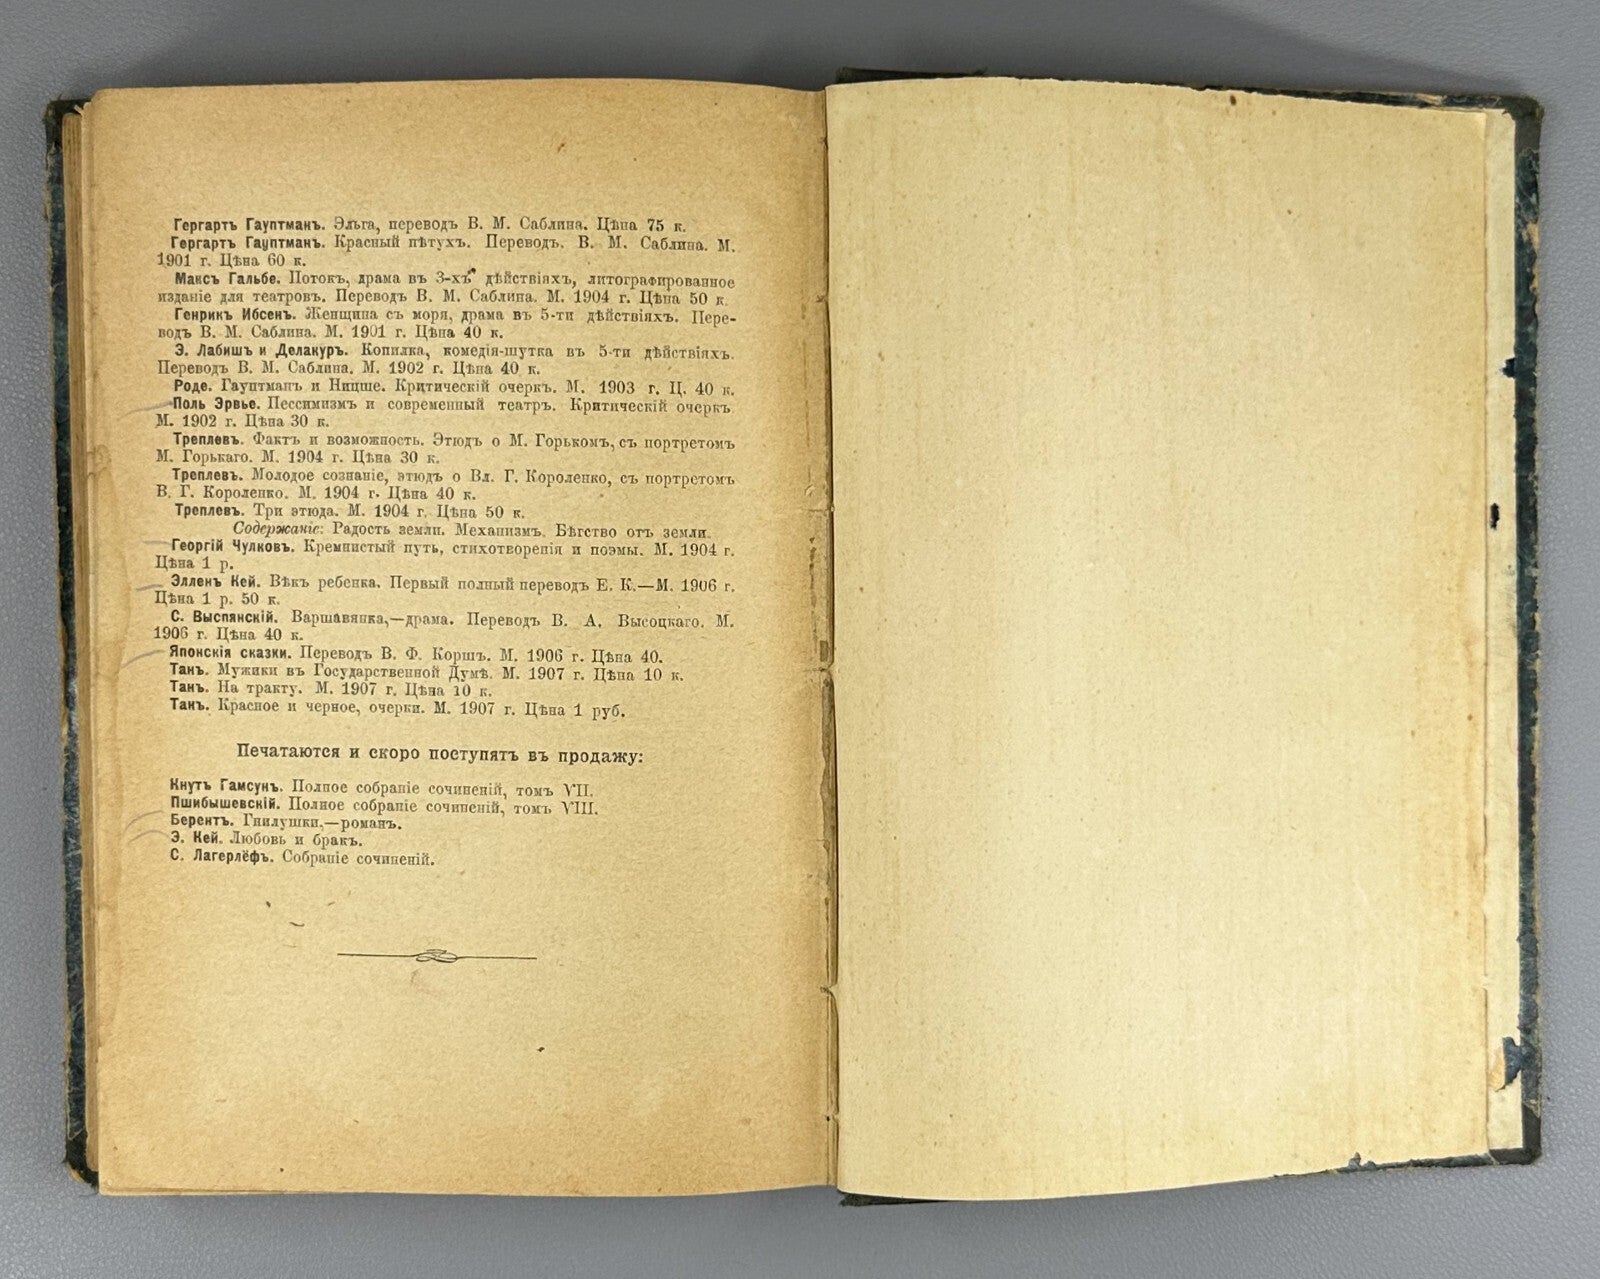 Гергартъ Гауптманъ. Эльга, переводъ В. М. Саблина. Цѣна 75 к.
Гергартъ Гауптманъ. Красный пѣтухъ. Переводъ. В. М. Саблина. М.
1901 г. Цѣна 60 к.
Максъ Гальбе. Потокъ, драма въ 3-хъ дѣйствіяхъ, литографированное
изданіе для театровъ. Переводъ В. М. Саблина. М. 1904 г. Цѣна 50 к.
Генрикъ Ибсенъ. Женщина съ моря, драма въ 5-ти дѣйствіяхъ. Пере-
водъ В. М. Саблина. М. 1901 г. Цѣна 40 к.
Э. Лабишъ и Делакуръ. Копилка, комедія-шутка въ 5-ти дѣйствіяхъ.
Переводъ В. М. Саблина. М. 1902 г. Цѣна 40 к.
Роде. Гауптманъ и Ницше. Критическій очеркъ. М. 1903 г. Ц. 40 к.
Поль Эрвье. Пессимизмъ и современный театръ. Критическій очеркъ
М. 1902 г. Цѣна 30 к.
Треплевъ. Фактъ и возможность. Этюдъ о М. Горькомъ, съ портретомъ
М. Горькаго. М. 1904 г. Цѣна 30 к.
Треплевъ. Молодое сознаніе, этюдъ о Вл. Г. Короленко, съ портретомъ
В. Г. Короленко. М. 1904 г. Цѣна 40 к.
Треплевъ. Три этюда. М. 1904 г. Цѣна 50 к.
Содержаніе: Радость земли. Механизмъ. Бѣгство отъ земли.
Георгій Чулковъ. Кремнистый путь, стихотворенія и поэмы. М. 1904 г.
Цѣна 1 р.
Элленъ Кей. Вѣкъ ребенка. Первый полный переводъ Е. К.—М. 1906 г.
Цѣна 1 р. 50 к.
С. Выспянскій. Варшавянка,—драма. Переводъ В. А. Высоцкаго. М.
1906 г. Цѣна 40 к.
Японскія сказки. Переводъ В. Ф. Коршъ. М. 1906 г. Цѣна 40.
Танъ. Мужики въ Государственной Думѣ. М. 1907 г. Цѣна 10 к.
Танъ. На тракту. М. 1907 г. Цѣна 10 к.
Танъ. Красное и черное, очерки. М. 1907 г. Цѣна 1 руб.
Печатаются и скоро поступятъ въ продажу:
Кнутъ Гамсунъ. Полное собраніе сочиненій, томъ VII.
Пшибышевскій. Полное собраніе сочиненій, томъ VIII.
Берентъ. Гнилушки,—романъ.
Э. Кей. Любовь и бракъ.
С. Лагерлёфъ. Собраніе сочиненій.